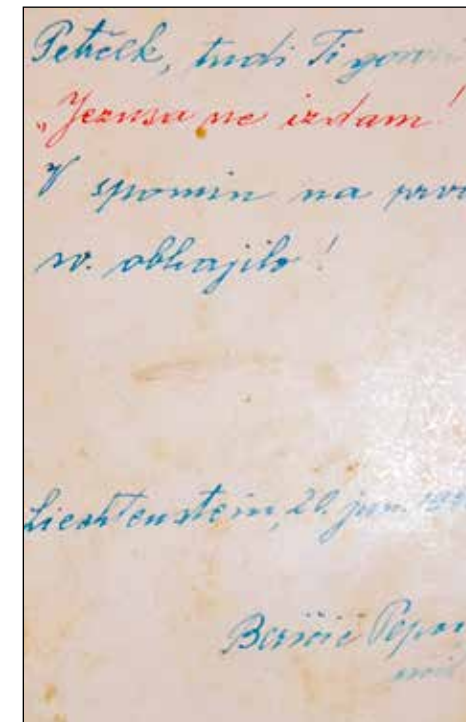 Petrček, tudi Ti govori
„Jezusa ne izdam!
V spomin na prvo
sv. obhajilo!
Liechtenstein, 20. jun.